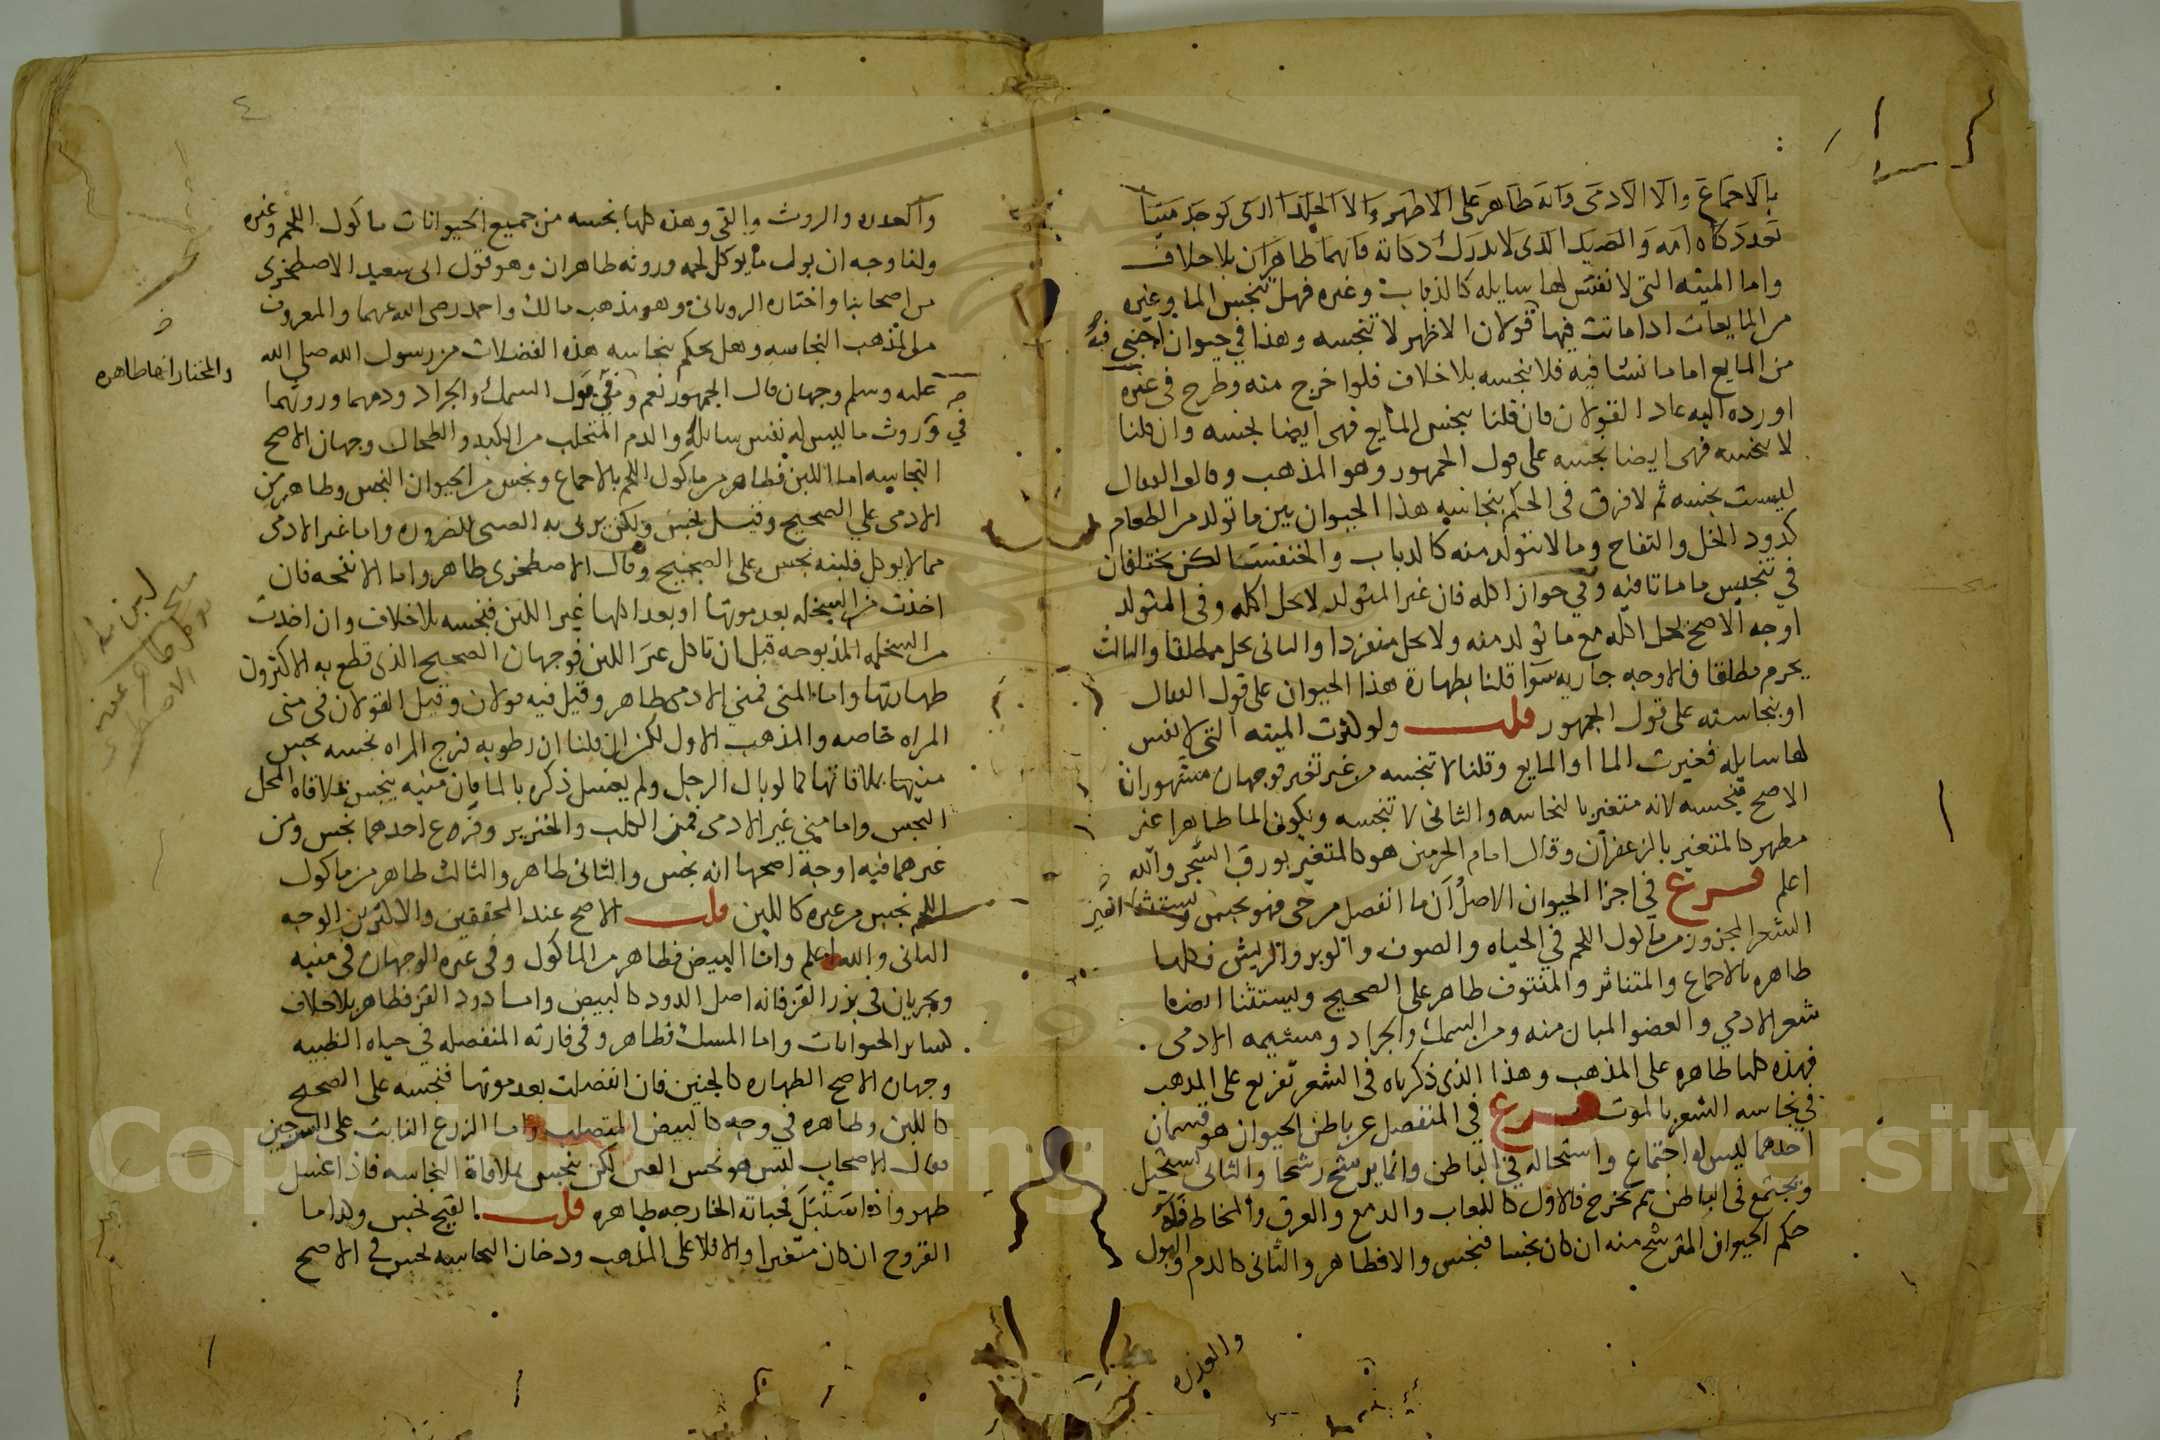 بالاجماع والا الادمى فانه طاهر على الاظهر والا الجلد الذى يوجد ميتا
بعد ذكاه امه والصيد الذى لا تدرك ذكاته فانهما طاهران بلا خلاف
واما الميته التى لا نفس لها سايله كالذباب وغيره فهل تنجس الما وغيره
من المايعات اذا ماتت فيها قولان الاظهر لا تنجسه وهذا في حيوان اجنبى
من المايع اما ما نشا فيه فلا ينجسه بلا خلاف فلوا خرج منه وطرح فى غيره
او رده اليه عاد القولان فان قلنا ينجس المايع فهى ايضا نجسه وان قلنا
لا ينجسه فهى ايضا نجسه على قول الجمهور وهو المذهب وقال القفال
ليست نجسه ثم لا فرق فى الحكم بنجاسه هذا الحيوان بين ما تولد من الطعام
كدود الخل والتفاح وما لا يتولد منه كالذباب والخنفسا لكن يختلفان
في تنجيس ما ماتا فيه وفي جواز اكله فان غير المتولد لا يحل اكله وفى المتولد
اوجه الاصح يحل اكله مع ما تولد منه ولا يحل منفردا والثانى يحل مطلقا والثالث
يحرم مطلقا والاوجه جاريه سوا قلنا بطهارة هذا الحيوان على قول القفال
او بنجاسته على قول الجمهور قلت ولو كثرت الميته التى لا نفس
لها سايله فغيرت الما او المايع وقلنا لا تنجسه من غير تغير فوجهان مشهوران
الاصح تنجسه لانه متغير بالنجاسه والثانى لا تنجسه ويكون الما طاهرا غير
مطهر كالمتغير بالزعفران وقال امام الحرمين هو كالمتغير بورق الشجر والله
اعلم فرع في اجزا الحيوان الاصل ان ما انفصل من حى فهو نجس ويستثنا
الشعر المجزوز من ماكول اللحم في الحياه والصوف والوبر والريش فكلها
طاهره بالاجماع والمتناثر والمنتوف طاهر على الصحيح ويستثنا ايضا
شعر الادمي والعضو المبان منه ومن السمك والجراد ومشيمه الادمى
فهذه كلها طاهره على المذهب وهذا الذى ذكرناه فى الشعر تفريع على المذهب
في نجاسه الشعر بالموت فرع في المنفصل عن باطن الحيوان هو قسمان
احدهما ليس له اجتماع واستحاله في الباطن وانما يرشح رشحا والثانى يستحيل
ويجتمع فى الباطن ثم يخرج فالاول كاللعاب والدمع والعرق والمخاط
حكم الحيوان المترشح منه ان كان نجسا فنجس والا فطاهر والثانى كالدم والبول
والعذره
والعذره والروث والقى وهذه كلها نجسه من جميع الحيوانات ماكول اللحم وغيره
ولنا وجه ان بول ما يوكل لحمه وروثه طاهران وهو قول ابى سعيد الاصطخرى
من اصحابنا واختاره الرويانى وهو مذهب مالك واحمد رضى الله عنهما والمعروف
من المذهب النجاسه وهل يحكم بنجاسه هذه الفضلات من رسول الله صلى الله
والمختار انها طاهره
عليه وسلم وجهان قال الجمهور نعم وفى بول السمك والجراد ودمهما وروثهما
وروث ما ليس له نفس سايلة والدم المتحلب من الكبد والطحال وجهان الاصح
النجاسه اما اللبن فطاهر من ماكول اللحم بالاجماع ونجس من الحيوان النجس وطاهر من
الادمى على الصحيح وقيل نجس ولكن يربى به الصبى للضروره واما غير الادمى
مما لا يوكل فلبنه نجس على الصحيح وقال الاصطخرى طاهر واما الانفحه فان
اخذت من السخله بعد موتها او بعد اكلها غير اللبن فنجسه بلا خلاف وان اخذت
من السخله المذبوحه قبل ان تاكل غير اللبن فوجهان الصحيح الذى قطع به الاكثرون
طهارتها واما المنى فمنى الادمى طاهر وقيل فيه قولان وقيل القولان فى منى
المراه خاصه والمذهب الاول لكن ان قلنا ان رطوبه فرج المراه نجسه نجس
منيها بملاقاتها كما لو بال الرجل ولم يغسل ذكره بالما فان منيه ينجس بملاقاه المحل
النجس واما مني غير الادمى فمن الكلب والخنزير وفرع احدهما نجس ومن
غيرهما فيه اوجه اصحها انه نجس والثانى طاهر والثالث طاهر من ماكول
اللحم نجس من غيره كاللبن قلت الاصح عند المحققين والاكثرين الوجه
الثانى والله اعلم واما البيض فطاهر من الماكول وفى غيره الوجهان فى منيه
ويجريان فى بزر القز فانه اصل الدود كالبيض واما دود القز فطاهر بلا خلاف
كساير الحيوانات واما المسك فطاهر وفى فارته المنفصله في حياه الظبيه
وجهان الاصح الطهاره كالجنين فان انفصلت بعد موتها فنجسه على الصحيح
كاللبن وطاهره في وجه كالبيض المتصلب واما الزرع النابت على السرجين
فقال الاصحاب ليس هو نجس العين لكن ينجس بملاقاة النجاسه فاذا غسل
طهر واذا سنبل فحباته الخارجه طاهره قلت القيح نجس وكذا ما
القروح ان كان متغيرا والا فلا على المذهب ودخان النجاسه نجس في الاصح